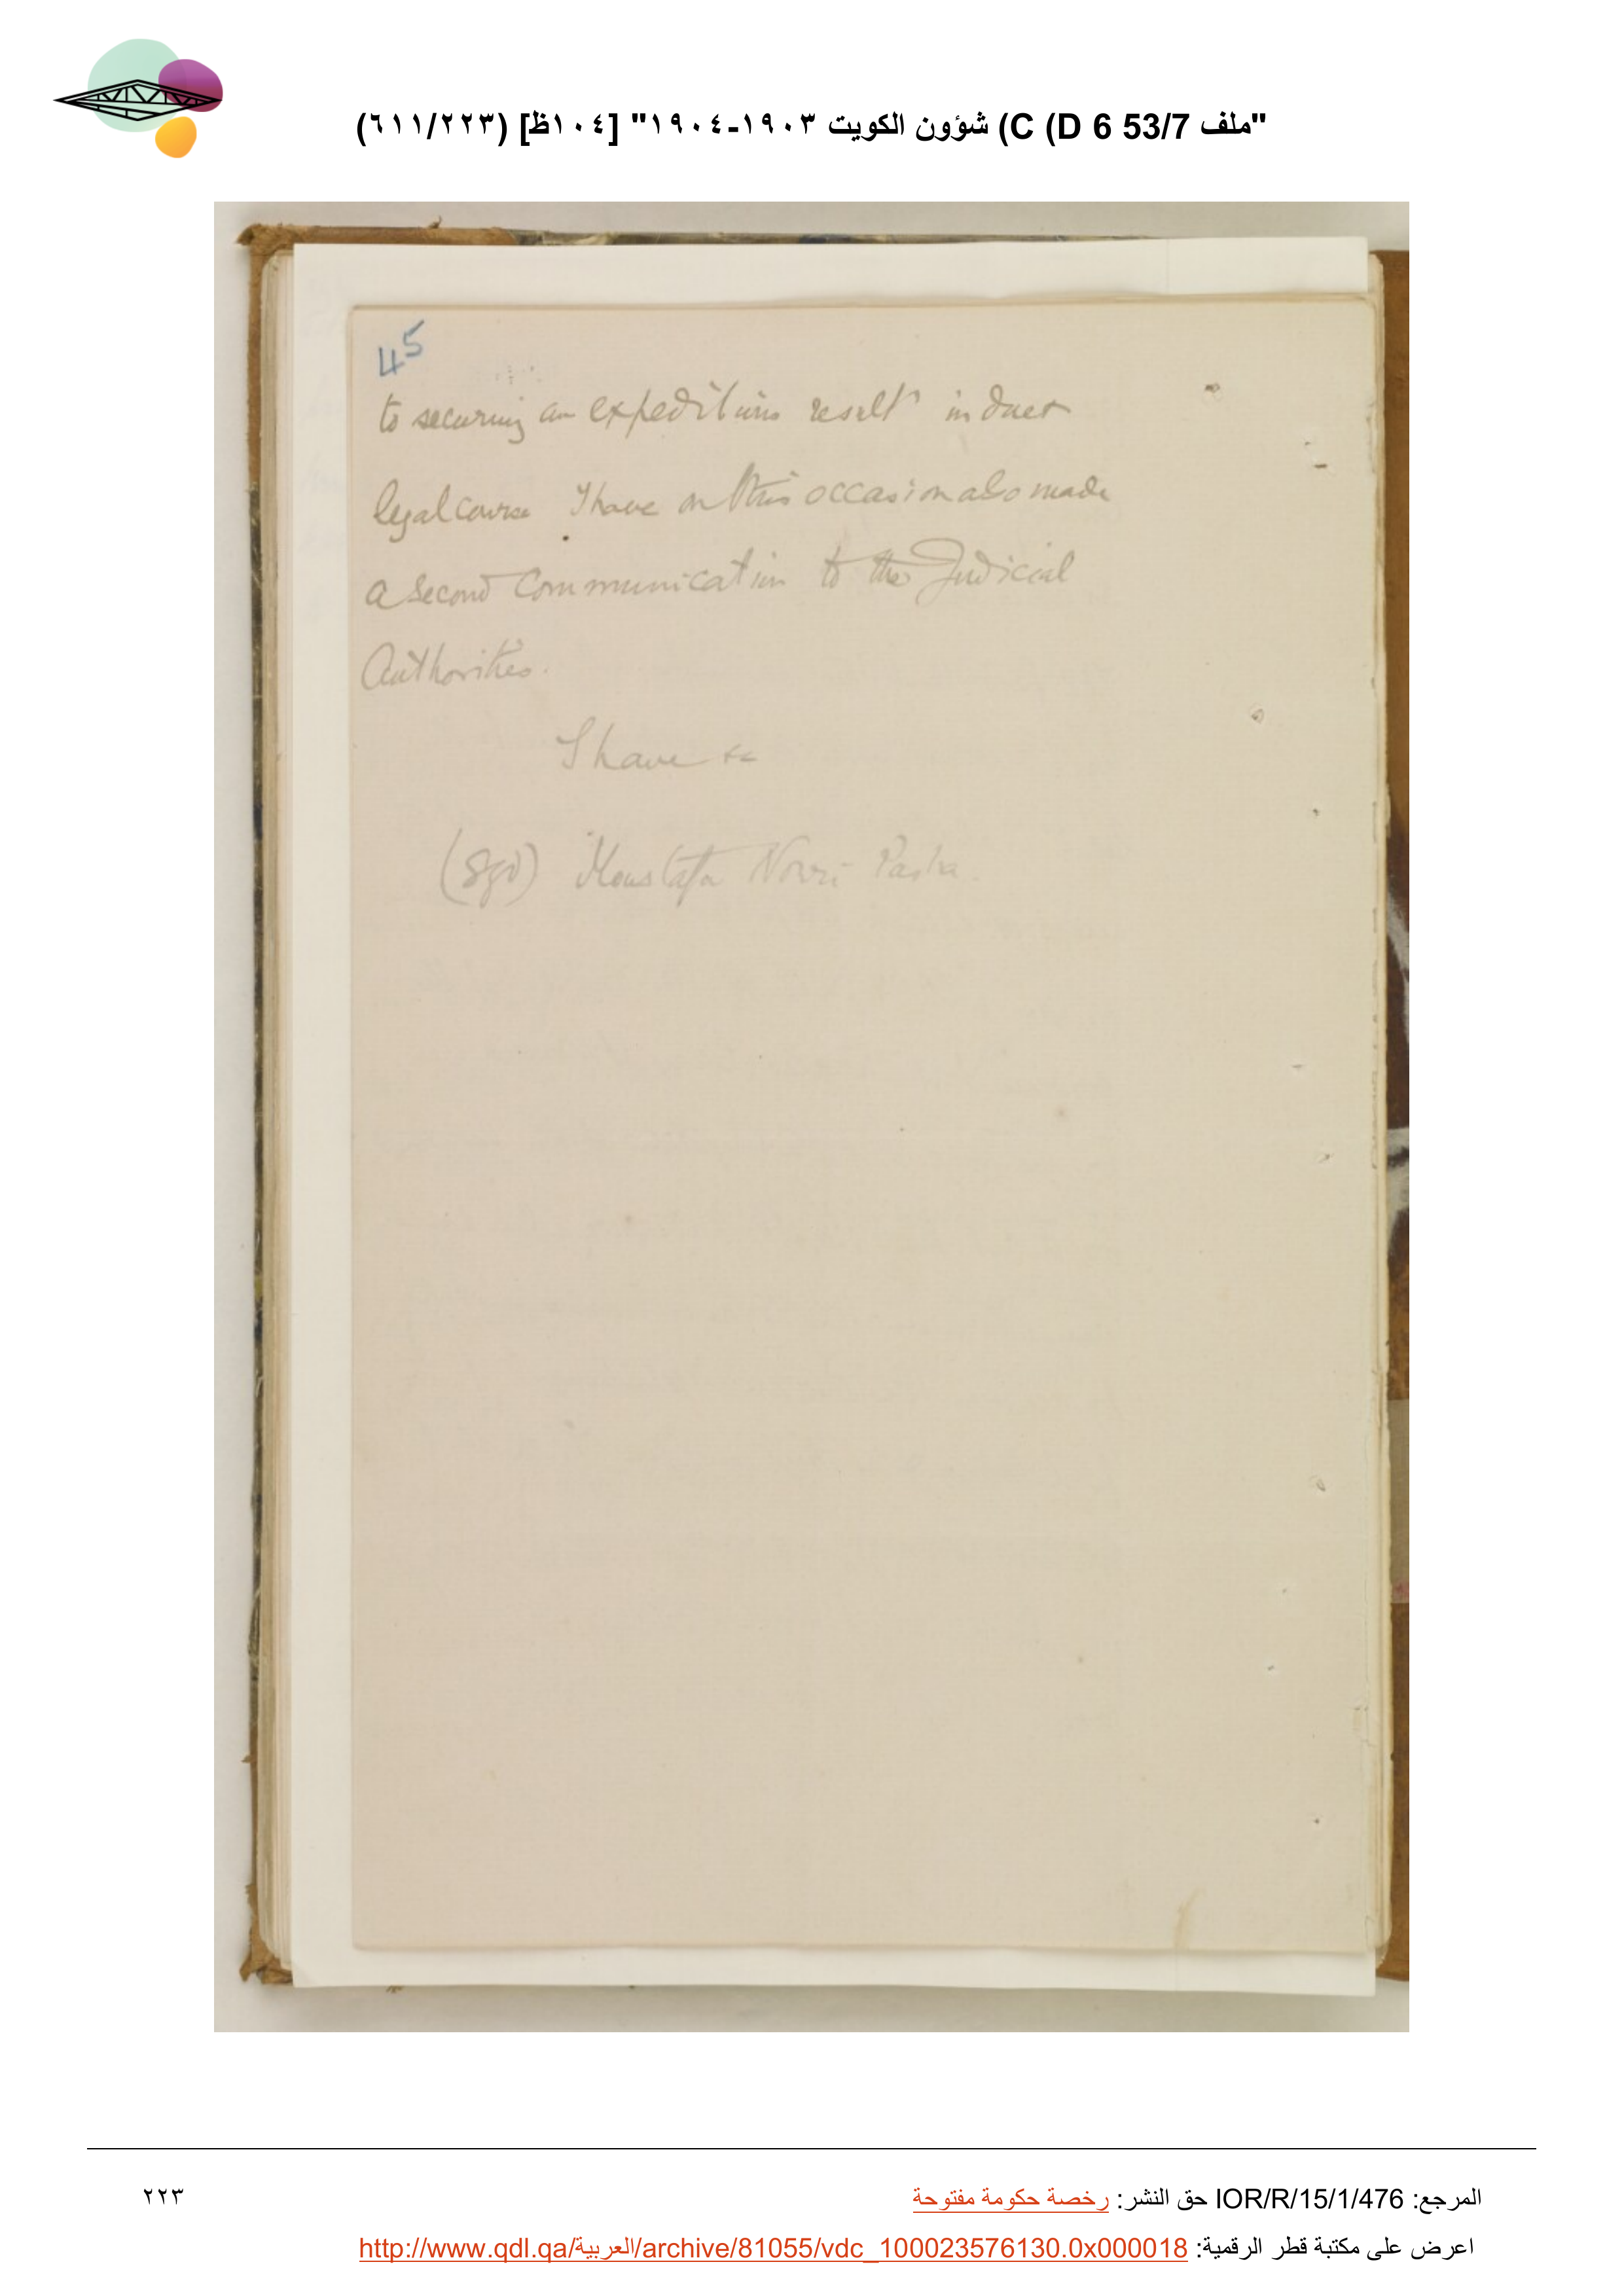 "ملف 53/7 D 6) C) شؤون الكويت ١٩٠٣-١٩٠٤" [١٠٤ظ] (٦١١/٢٢٣)
45
to securing an expeditious result in due
legal course I have on this occasion also made
a second communication to the Judicial
Authorities.
I have &c
(Sgd) Moustafa Nouri Pasha.
المرجع: IOR/R/15/1/476 حق النشر: رخصة حكومة مفتوحة
٢٢٣
اعرض على مكتبة قطر الرقمية: http://www.qdl.qa/العربية/archive/81055/vdc_100023576130.0x000018